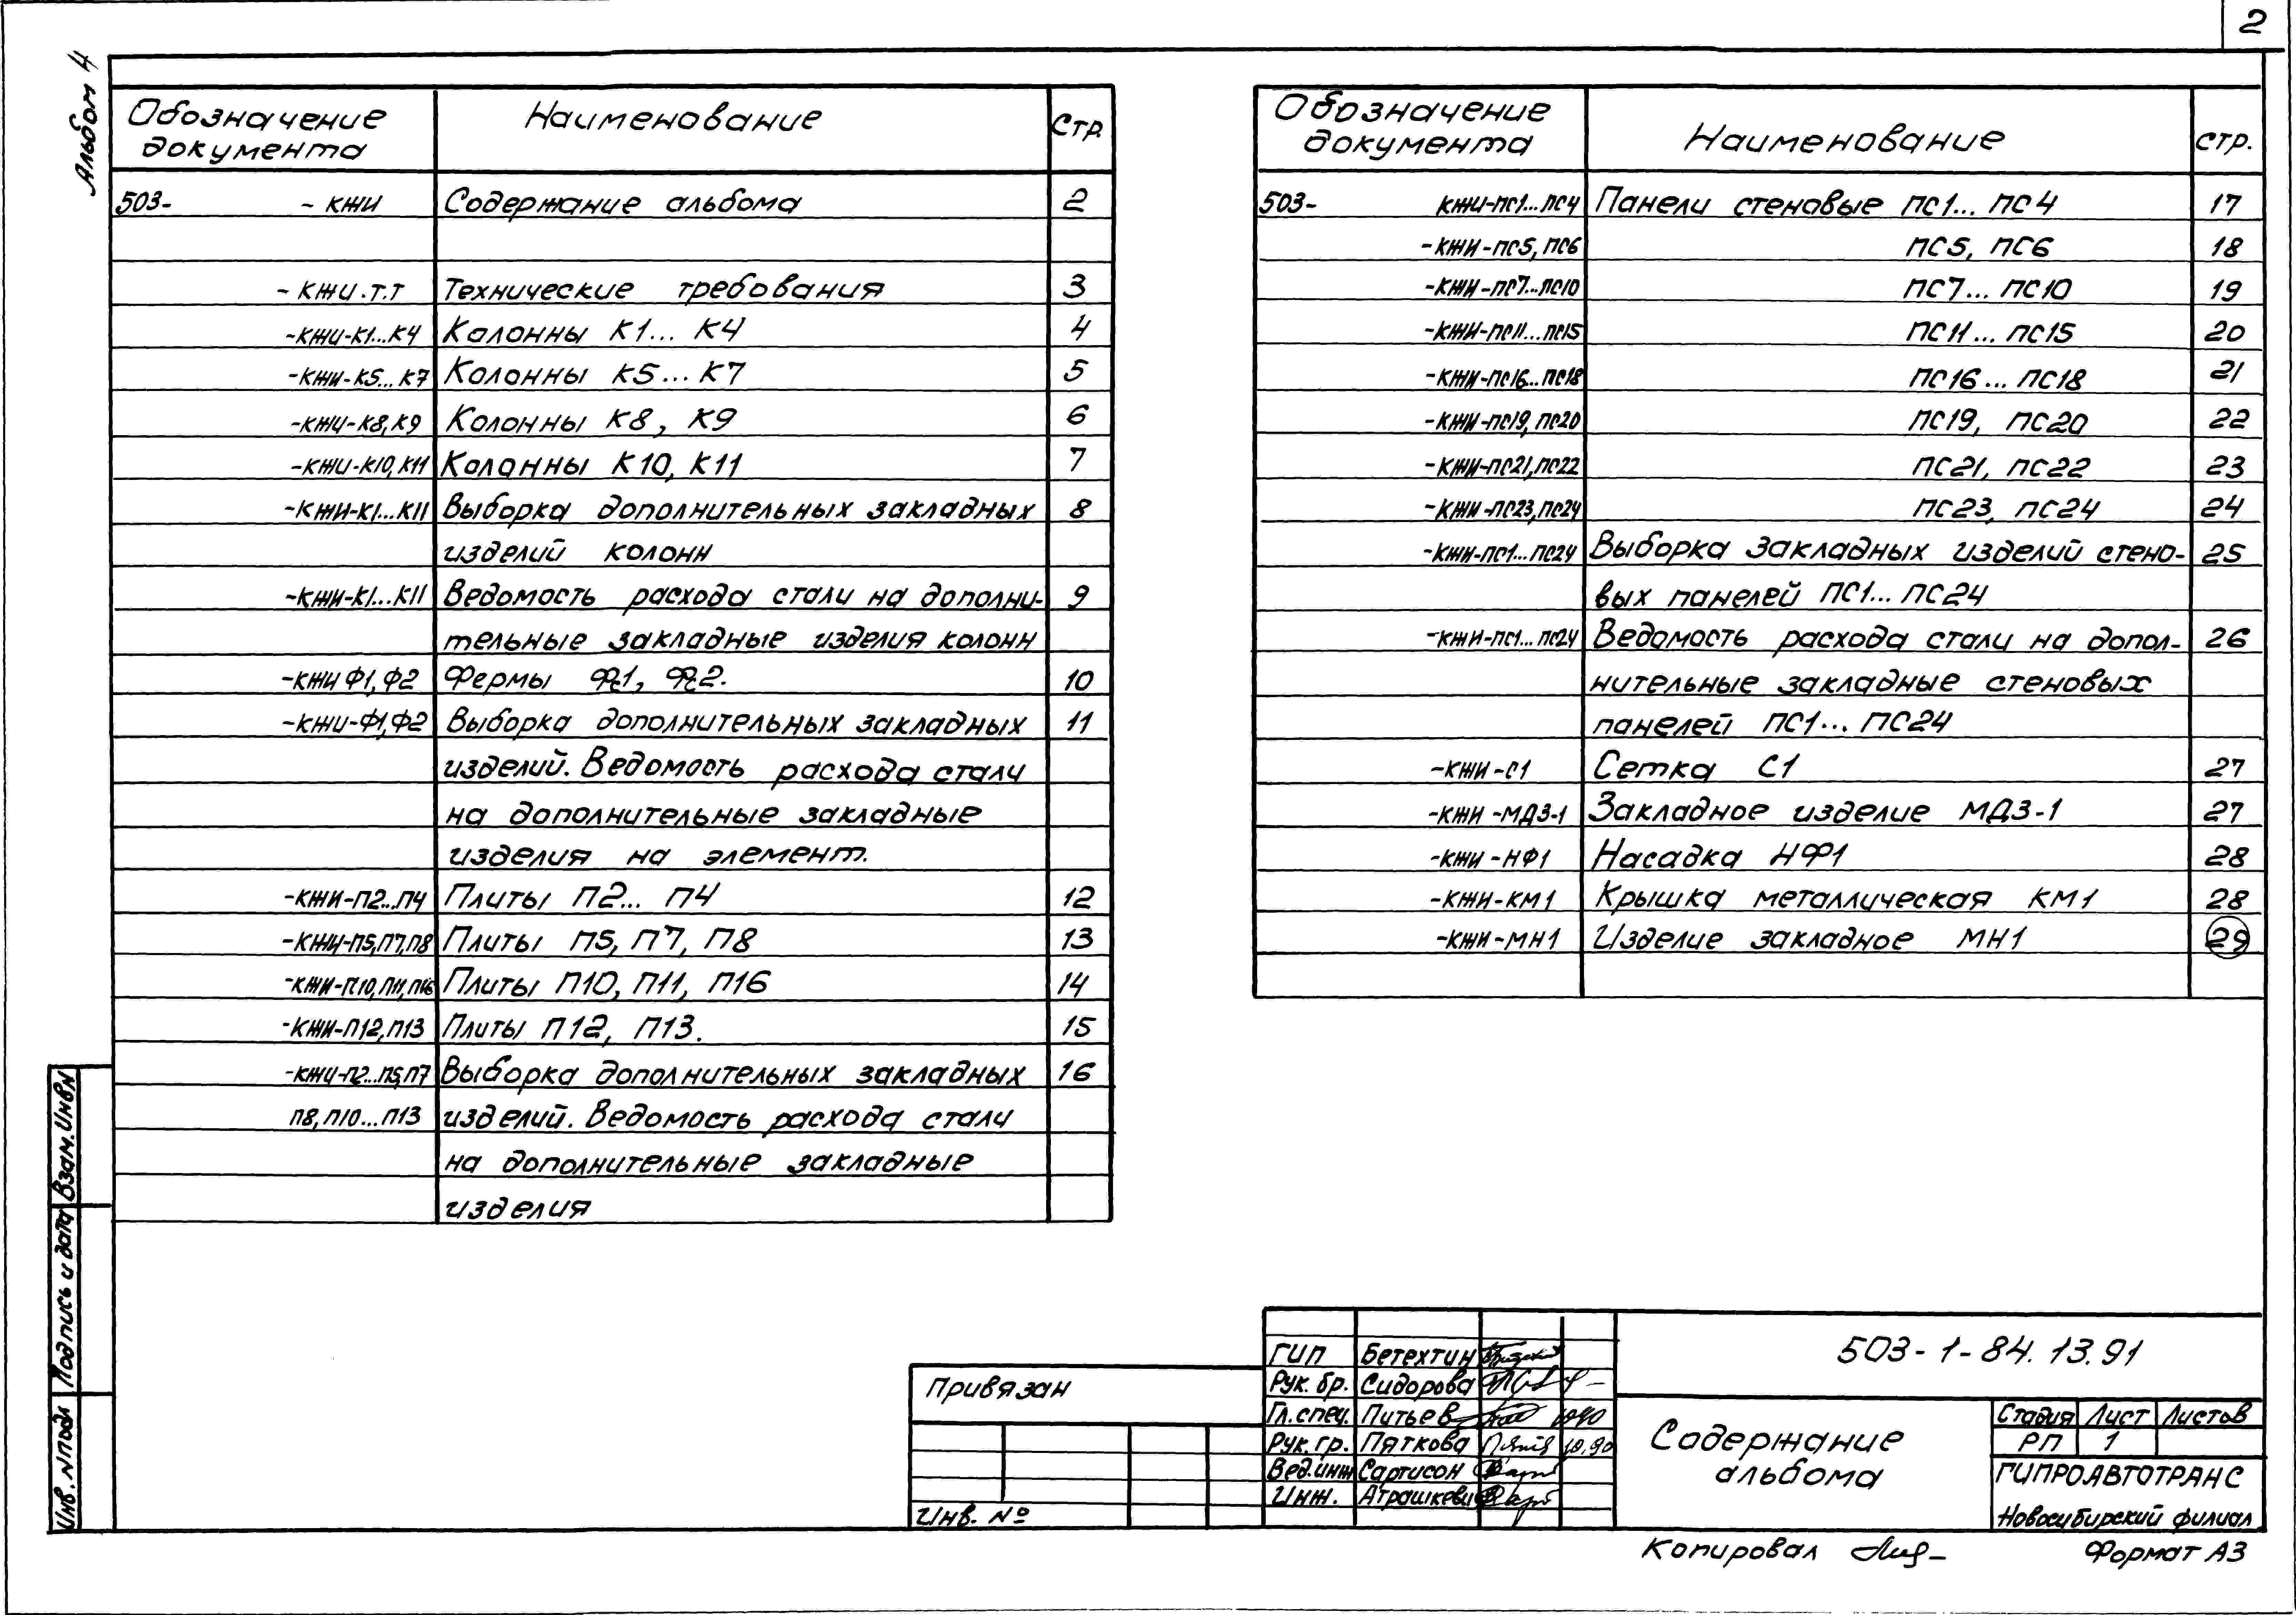 2
Альбом 4
Обозначение документа Наименование Стр.
503- - КЖИ Содержание альбома 2
- КЖИ.Т.Т Технические требования 3
-КЖИ-К1...К4 Колонны К1... К4 4
-КЖИ-К5...К7 Колонны К5...К7 5
-КЖИ-К8,К9 Колонны К8, К9 6
-КЖИ-К10,К11 Колонны К10, К11 7
-КЖИ-К1...К11 Выборка дополнительных закладных 8
изделий колонн
-КЖИ-К1...К11 Ведомость расхода стали на дополни- 9
тельные закладные изделия колонн
-КЖИ Ф1,Ф2 Фермы Ф1, Ф2. 10
-КЖИ-Ф1,Ф2 Выборка дополнительных закладных 11
изделий. Ведомость расхода стали
на дополнительные закладные
изделия на элемент.
-КЖИ-П2...П4 Плиты П2... П4 12
-КЖИ-П5,П7,П8 Плиты П5, П7, П8 13
-КЖИ-П10,П11,П16 Плиты П10, П11, П16 14
-КЖИ-П12,П13 Плиты П12, П13. 15
-КЖИ-П2...П5,П7 Выборка дополнительных закладных 16
П8,П10...П13 изделий. Ведомость расхода стали
на дополнительные закладные
изделия
Обозначение документа Наименование стр.
503- КЖИ-ПС1...ПС4 Панели стеновые ПС1... ПС4 17
-КЖИ-ПС5, ПС6 ПС5, ПС6 18
-КЖИ-ПС7...ПС10 ПС7... ПС10 19
-КЖИ-ПС11...ПС15 ПС11... ПС15 20
-КЖИ-ПС16...ПС18 ПС16... ПС18 21
-КЖИ-ПС19, ПС20 ПС19, ПС20 22
-КЖИ-ПС21, ПС22 ПС21, ПС22 23
-КЖИ-ПС23, ПС24 ПС23, ПС24 24
-КЖИ-ПС1...ПС24 Выборка закладных изделий стено- 25
вых панелей ПС1... ПС24
-КЖИ-ПС1...ПС24 Ведомость расхода стали на допол- 26
нительные закладные стеновых
панелей ПС1... ПС24
-КЖИ-С1 Сетка С1 27
-КЖИ-МДЗ-1 Закладное изделие МДЗ-1 27
-КЖИ-НФ1 Насадка НФ1 28
-КЖИ-КМ1 Крышка металлическая КМ1 28
-КЖИ-МН1 Изделие закладное МН1 29
Взам.Инв.N
Подпись и дата
Инв. N подл
Привязан
Инв. №
ГИП Бетехтин
Рук. бр. Сидорова
Гл. спец. Питьев 10.90
Рук. гр. Пяткова 10.90
Вед.инж Сартисон
Инж. Атрашкевич
503-1-84.13.91
Содержание
альбома
Стадия Лист Листов
РП 1
ГИПРОАВТОТРАНС
Новосибирский филиал
Копировал
Формат А3